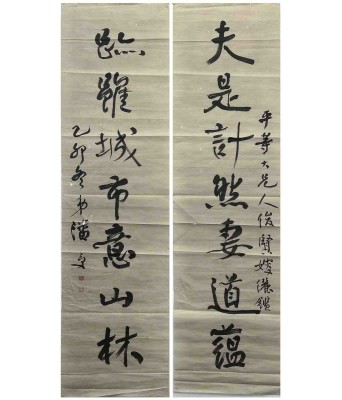 夫是計然妻道蘊
平等大兄人俊賢嫂儷鑑
跡雖城市意山林
乙卯冬弟潘